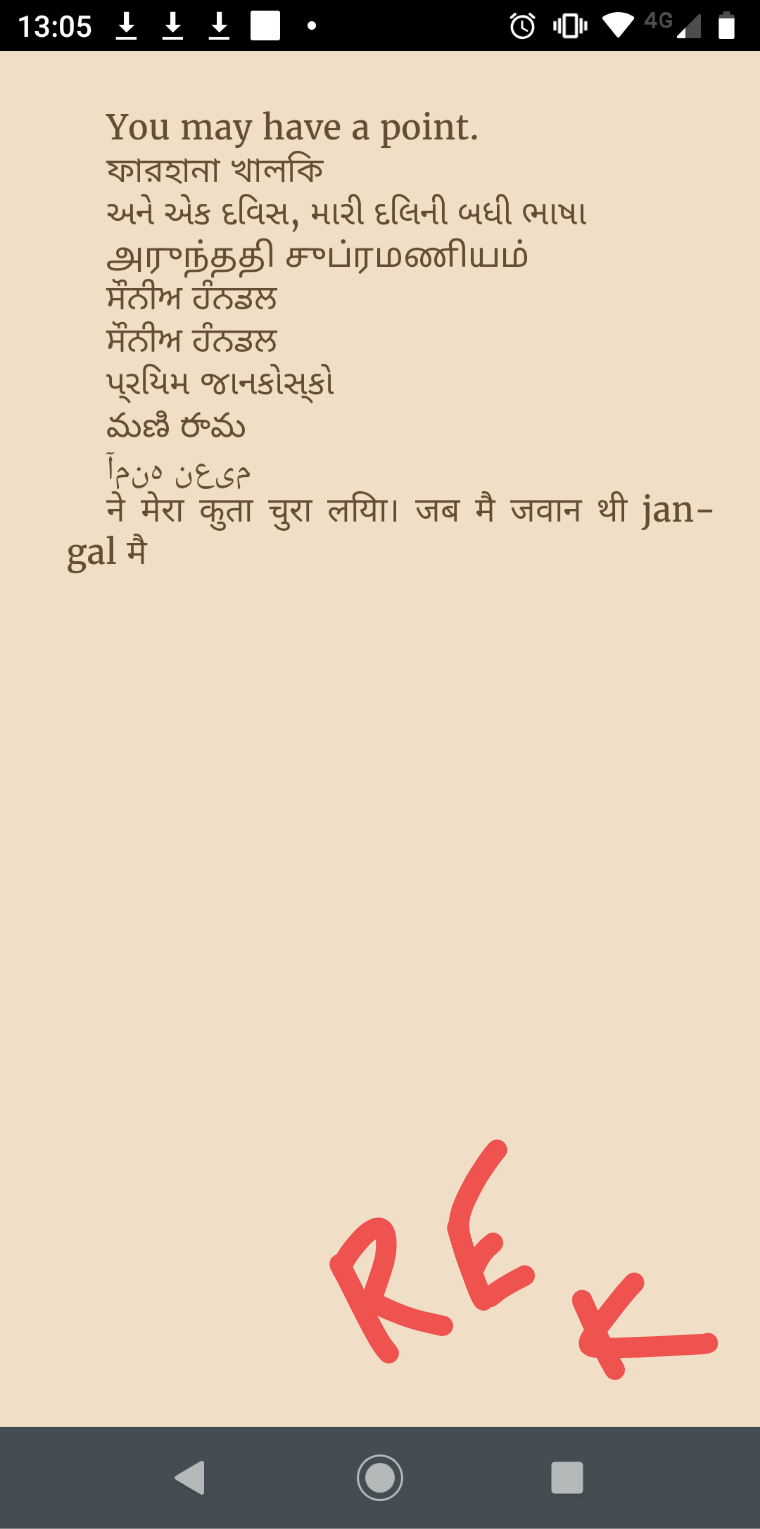 13:05
4G
You may have a point.
ফারহানা খালকি
અને એક દવિસ, મારી દલિની બધી ભાષા
அருந்ததி சுப்ரமணியம்
ਸੌਨੀਅ ਹੰਨਡਲ
ਸੌਨੀਅ ਹੰਨਡਲ
પ્રયિમ જાનકોસ્કો
మణి రామ
آمنہ نعیم
ने मेरा कुता चुरा लयिा। जब मै जवान थी jan-
gal मै
REK